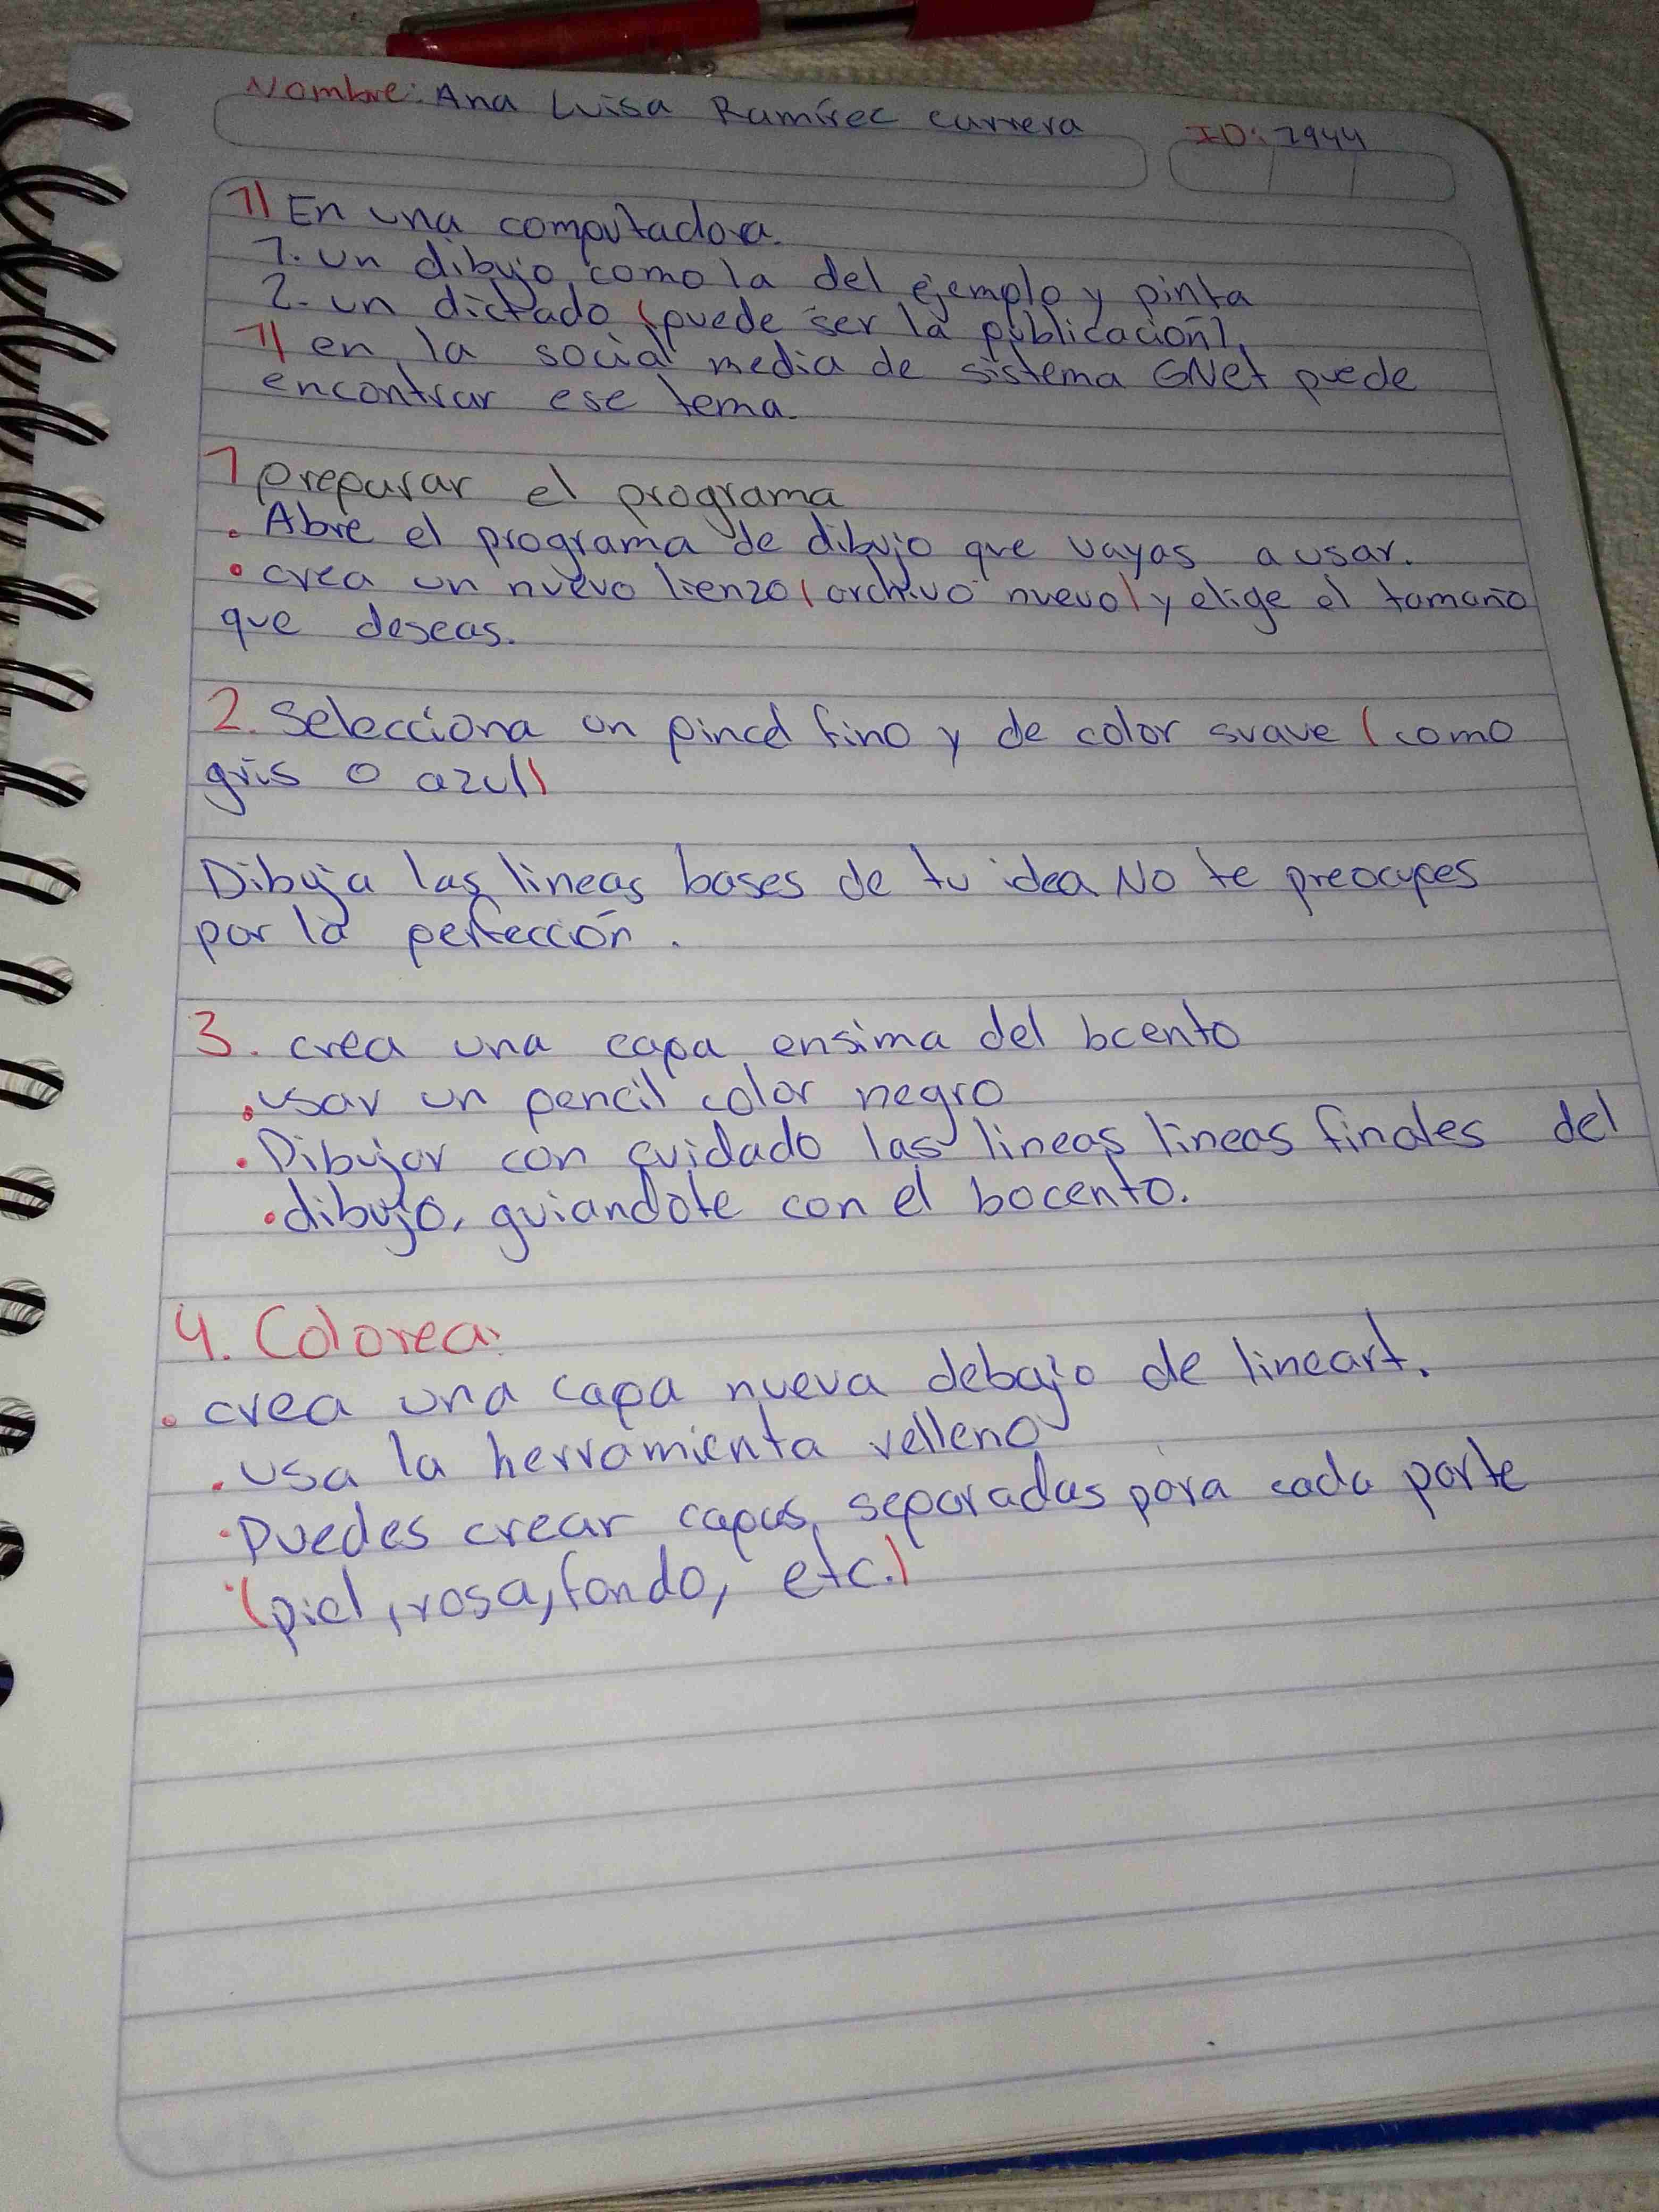 Nombre: Ana Luisa Ramírec carrera
ID: 1944
1) En una computadora.
1. un dibujo como la del ejemplo y pinta
2. un dictado (puede ser la publicación).
1) en la social media de sistema GNet puede
encontrar ese tema.
1 preparar el programa
• Abre el programa de dibujo que vayas a usar.
• crea un nuevo lienzo (archivo nuevo) y elige el tamaño
que deseas.
2. Selecciona un pincel fino y de color suave (como
gris o azul)
Dibuja las lineas bases de tu idea No te preocupes
por la perfección.
3. crea una capa ensima del bcento
• usar un pencil color negro
• Dibujar con cuidado las lineas lineas finales del
• dibujo, guiandote con el bocento.
4. Colorea:
• crea una capa nueva debajo de lineart.
• usa la herramienta relleno
• Puedes crear capas separadas para cada parte
• (piel, rosa, fondo, etc.)